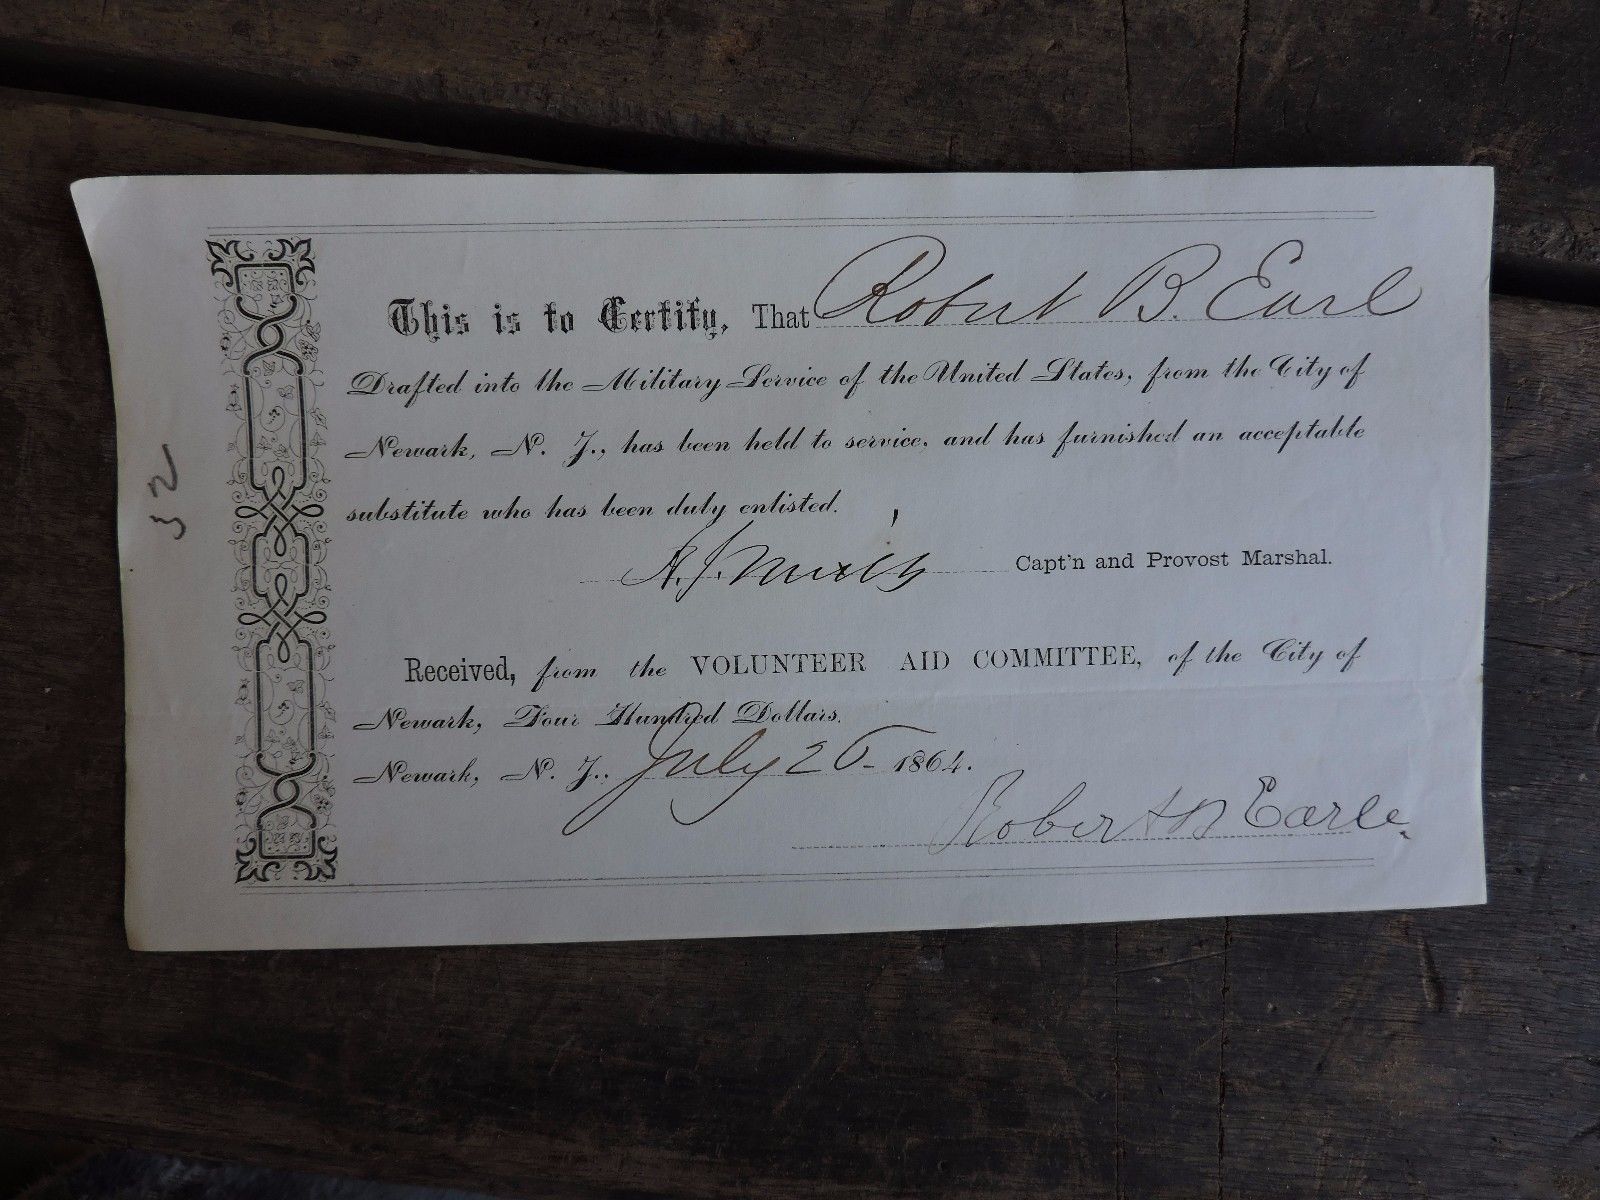 This is to Certify, That Robert B. Earl
Drafted into the Military Service of the United States, from the City of
Newark, N. J., has been held to service, and has furnished an acceptable
substitute who has been duly enlisted.
Capt'n and Provost Marshal.
Received, from the VOLUNTEER AID COMMITTEE, of the City of
Newark, Four Hundred Dollars.
Newark, N. J., July 1864.
Robert B Earle
32